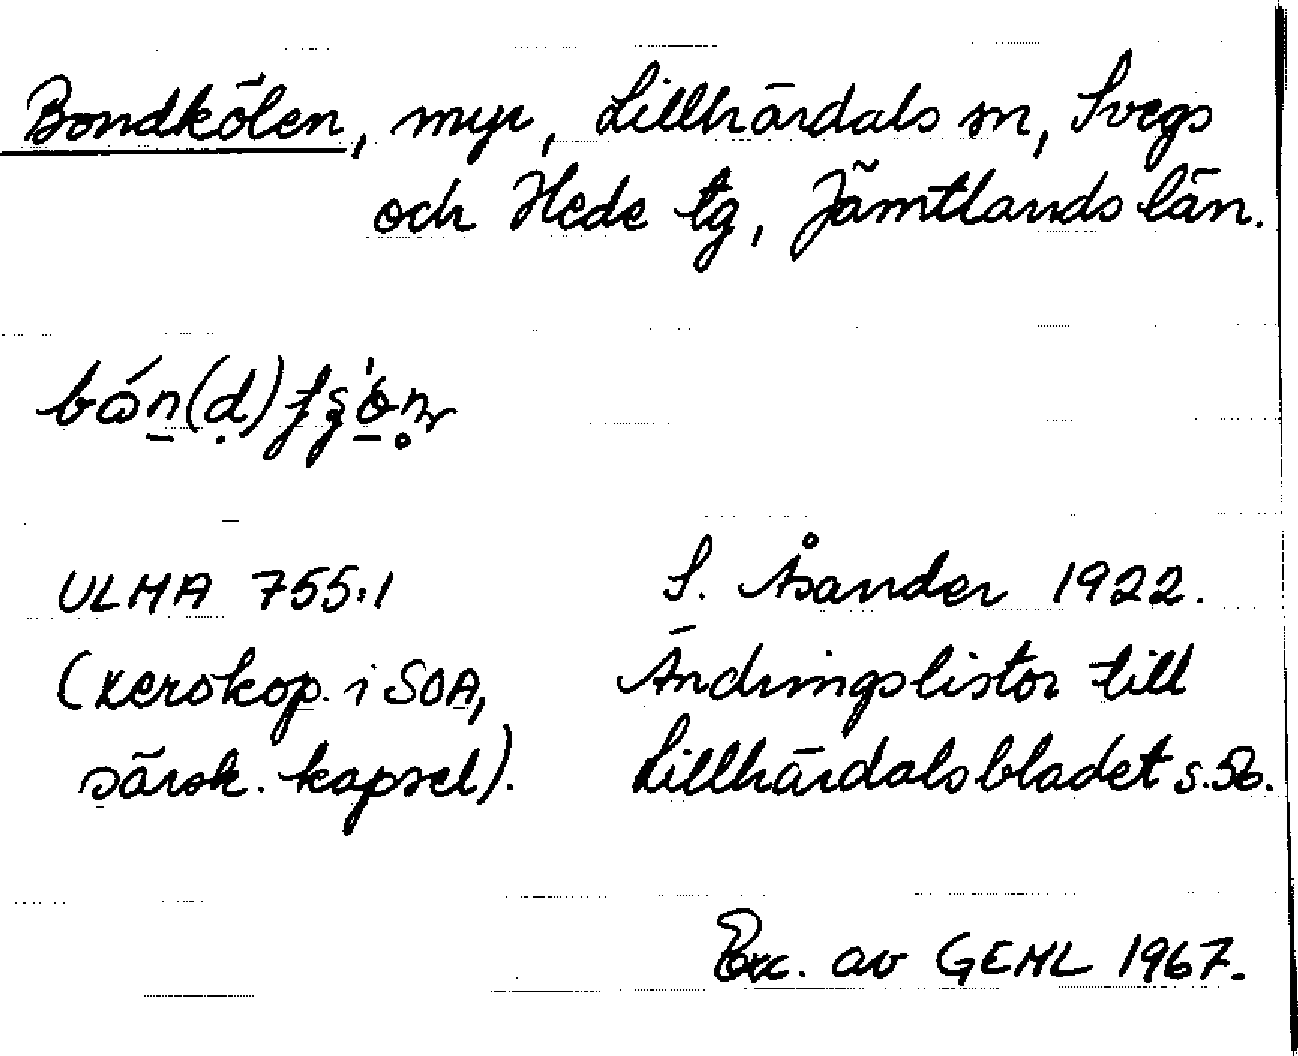 Bondkölen, myr, Lillhärdals sn, Svegs
och Hede tg, Jämtlands län.
ULMA 755:1
S. Åsander 1922.
(xerokop. i SOA,
Ändringslistor till
särsk. kapsel).
Lillhärdalsbladet s.
Exc. av GEML 1967.